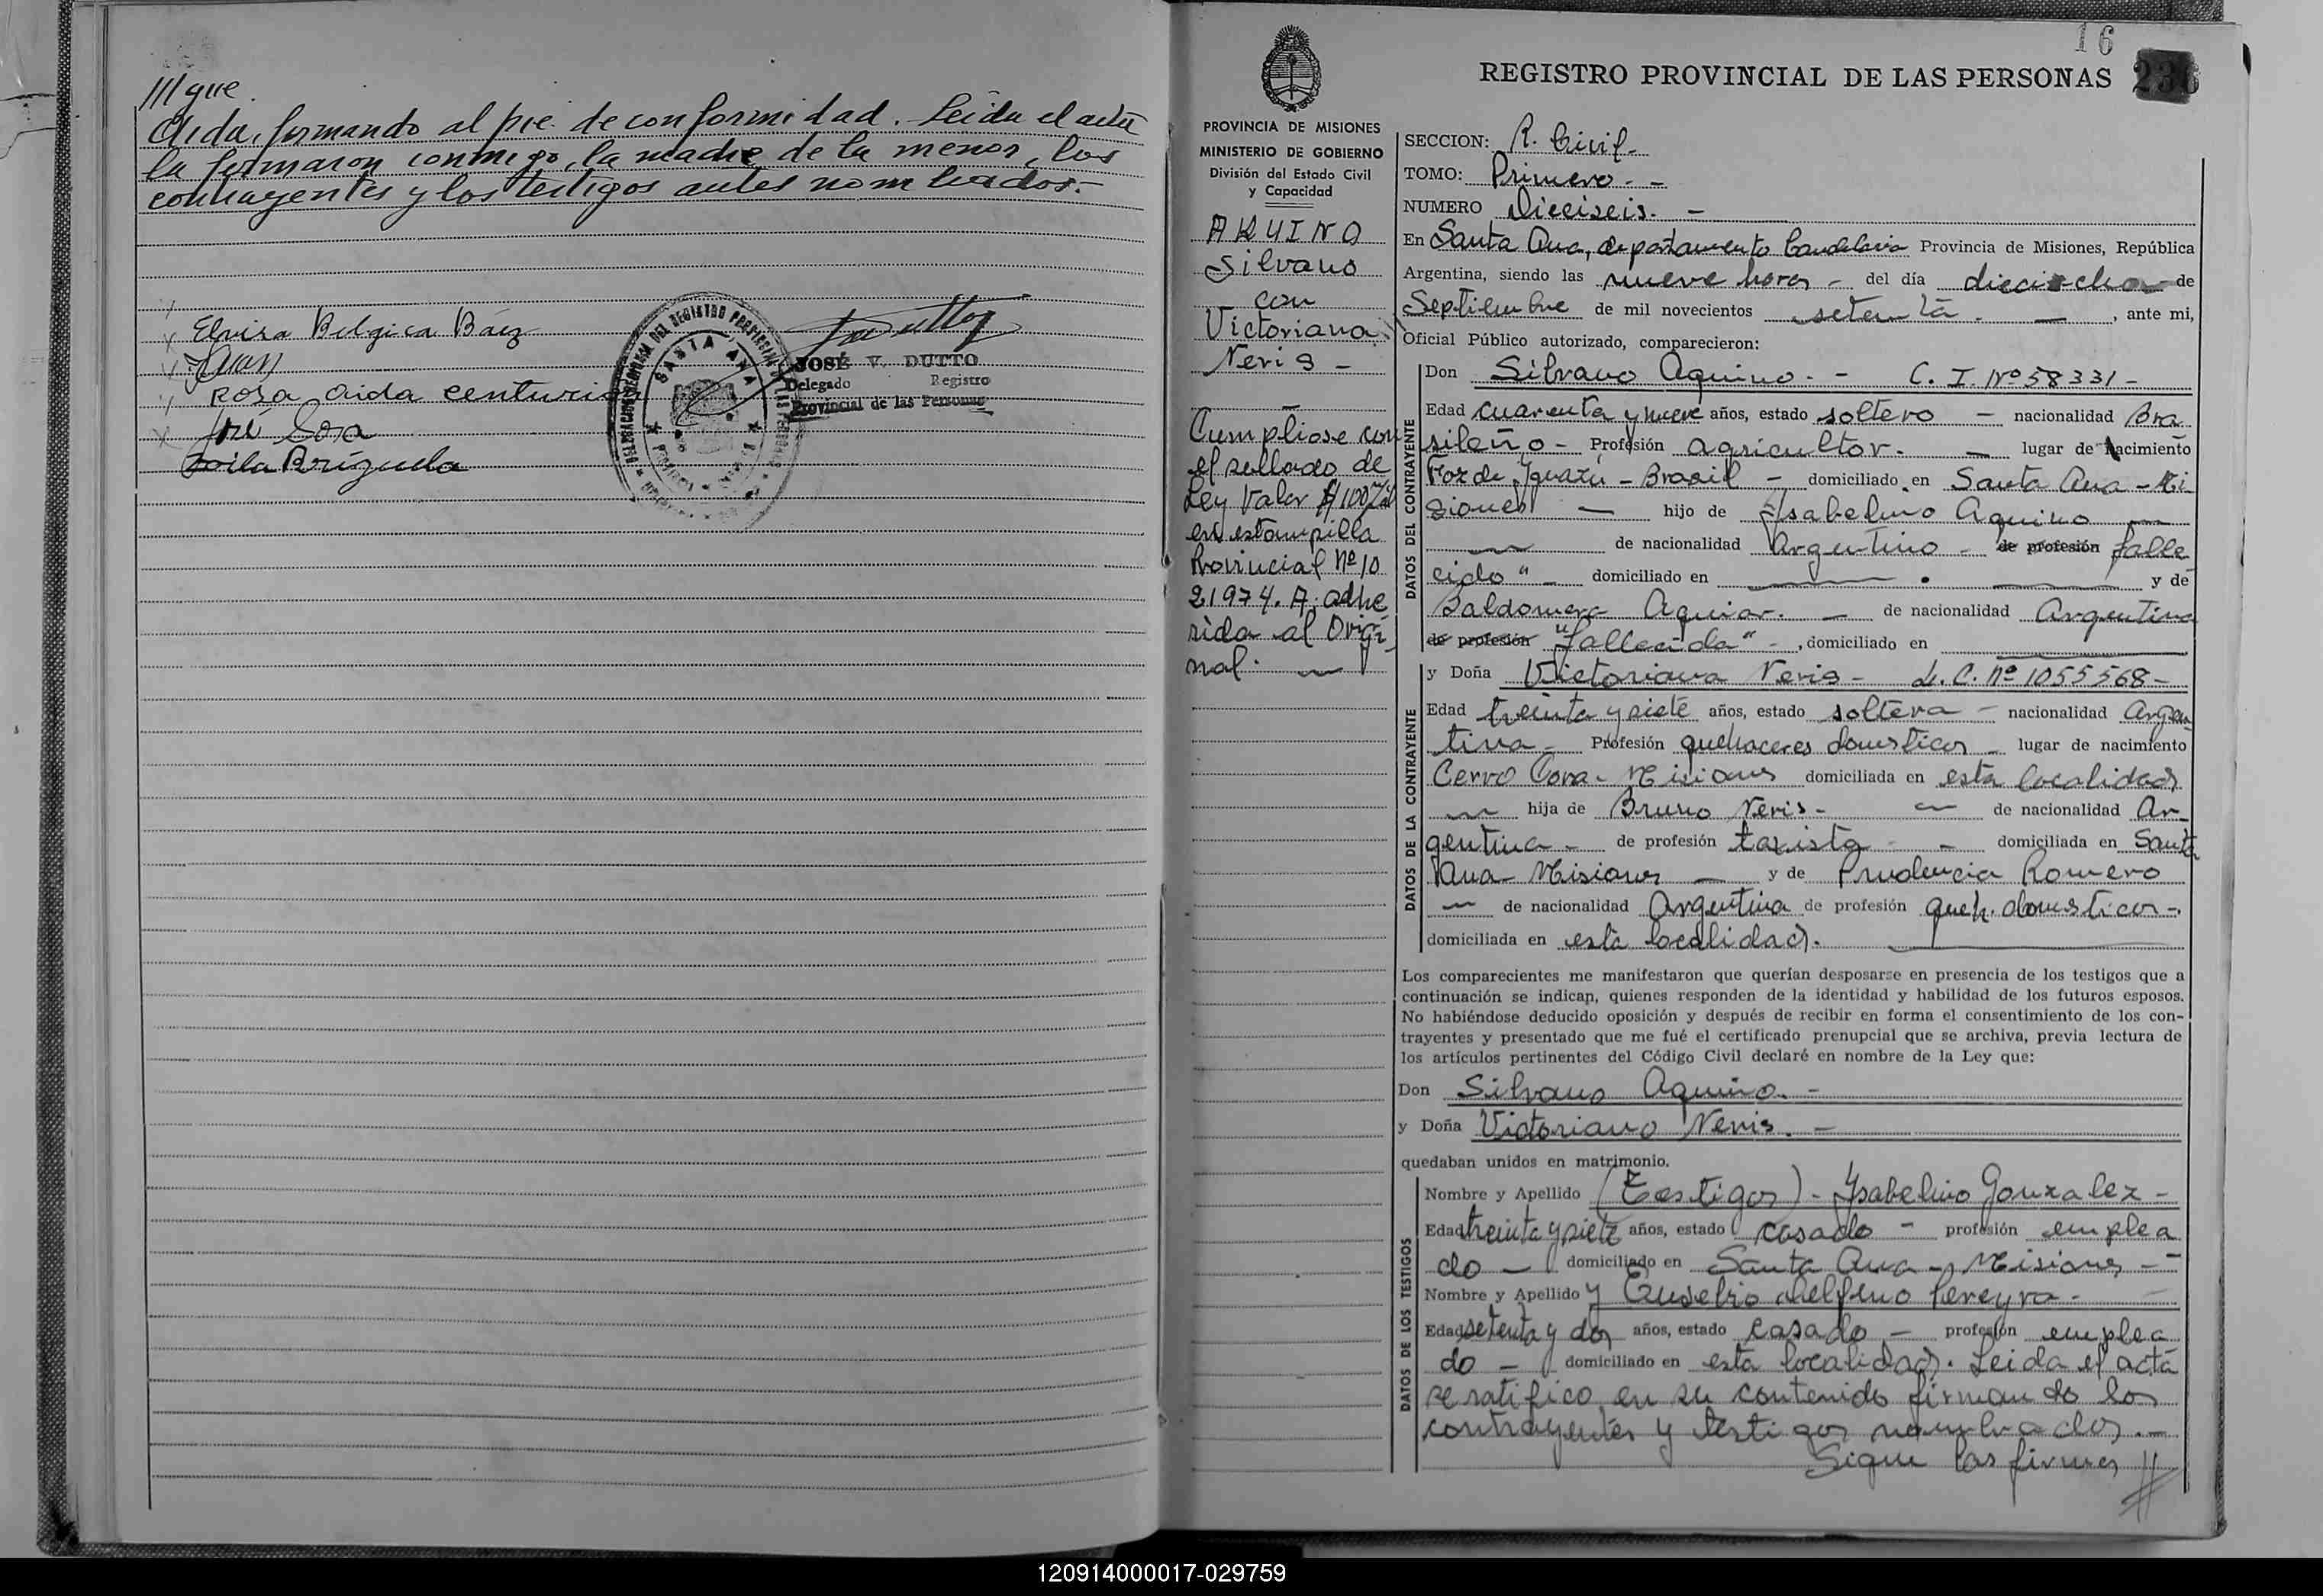 /// que
Aida, firmando al pie de conformidad. Leída el acta
la firmaron conmigo, la madre de la menor, los
contrayentes y los testigos antes nombrados.-
Elvira Belgica Báez
Rosa Aida Centurion
José Sosa
Zoila Brizuela
DELEGACION SECCIONAL DEL REGISTRO PROVINCIAL DE LAS PERSONAS
SANTA ANA
JOSÉ V. DUTTO
Delegado Registro
Provincial de las Personas
16
REGISTRO PROVINCIAL DE LAS PERSONAS 236
PROVINCIA DE MISIONES
MINISTERIO DE GOBIERNO
División del Estado Civil
y Capacidad
AKUINO
Silvano
con
Victoriana
Neris -
Cumpliose con
el sellado de
Ley Valor $/100
en estampilla
Provincial Nº 10
21974. A. adhe
rida al Origi
nal.
SECCION: R. Civil.-
TOMO: Primero. -
NUMERO Dieciseis. -
En Santa Ana, departamento Candelaria Provincia de Misiones, República
Argentina, siendo las nueve horas - del día dieciocho de
Septiembre de mil novecientos setenta. - , ante mi,
Oficial Público autorizado, comparecieron:
DATOS DEL CONTRAYENTE
Don Silvano Aquino. - C. I. Nº 58331 -
Edad cuarenta y nueve años, estado soltero - nacionalidad Bra
sileño - Profesión agricultor. - lugar de nacimiento
Foz de Yguazú - Brasil - domiciliado en Santa Ana - Mi
siones - hijo de Ysabelino Aquino -
de nacionalidad Argentino - de profesión falle
cido" - domiciliado en - . - y de
Baldomera Aquiar. - de nacionalidad Argentina
de profesión "fallecida" - , domiciliado en
DATOS DE LA CONTRAYENTE
y Doña Victoriana Neris - L. C. Nº 1055568 -
Edad treinta y siete años, estado soltera - nacionalidad Argen
tina - Profesión quehaceres domesticos - lugar de nacimiento
Cerro Cora - Misiones domiciliada en esta localidad
- hija de Bruno Neris - de nacionalidad Ar-
gentina - de profesión taxista - - domiciliada en Santa
Ana - Misiones - y de Prudencia Romero
- de nacionalidad Argentina de profesión queh. domesticos -.
domiciliada en esta localidad.
Los comparecientes me manifestaron que querían desposarse en presencia de los testigos que a
continuación se indican, quienes responden de la identidad y habilidad de los futuros esposos.
No habiéndose deducido oposición y después de recibir en forma el consentimiento de los con-
trayentes y presentado que me fué el certificado prenupcial que se archiva, previa lectura de
los artículos pertinentes del Código Civil declaré en nombre de la Ley que:
Don Silvano Aquino. -
y Doña Victoriano Neris. -
quedaban unidos en matrimonio.
DATOS DE LOS TESTIGOS
Nombre y Apellido (Testigos) - Ysabelino Gonzalez -
Edad treinta y siete años, estado casado - profesión emplea
do - domiciliado en Santa Ana - Misiones -
Nombre y Apellido y Eusebio Delfino Pereyra -
Edad setenta y dos años, estado casado - profesión emplea
do - domiciliado en esta localidad. Leida el acta
se ratifico en su contenido firmando los
contrayentes y testigos nombrados.-
Sigue las firmas //
120914000017-029759